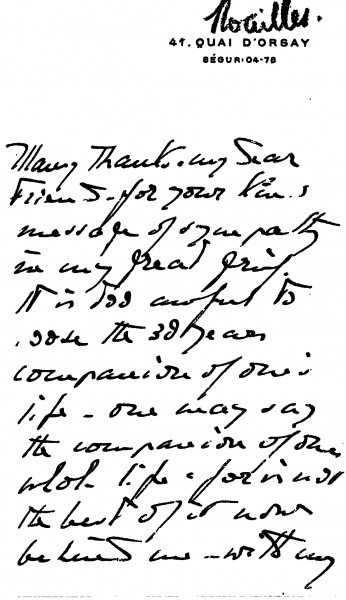 Noailles.
41. QUAI D'ORSAY
SÉGUR: 04-78
Many thanks my dear
Friend - for your kind
message of sympathy
in my great grief.
It is too awful to
lose the 38 years
companion of one's
life - one may say
the companion of one's
whole life - for is not
the best of it now
behind me - with my